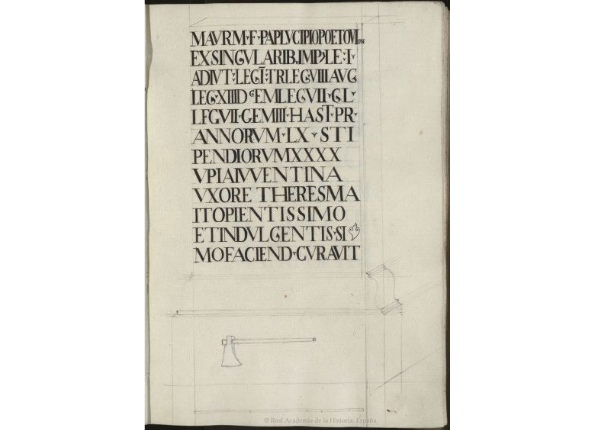 MAVRM·F·PAPLVCIPIOPOETOVI
EXSINGVLARIB·IMP>LE·I·
ADIVT·LEGI·TRLEGVIIIAVG
LEG·XIIIID GEMLEGVII·CL·
LEGVII·GEMIIII·HAST·PR·
ANNORVM·LX·STI
PENDIORVMXXXX
VPIAIVVENTINA
VXORE THERESMA
ITOPIENTISSIMO
ETINDVLGENTIS·SI
MOFACIEND·CVRAVIT
© Real Academia de la Historia. España